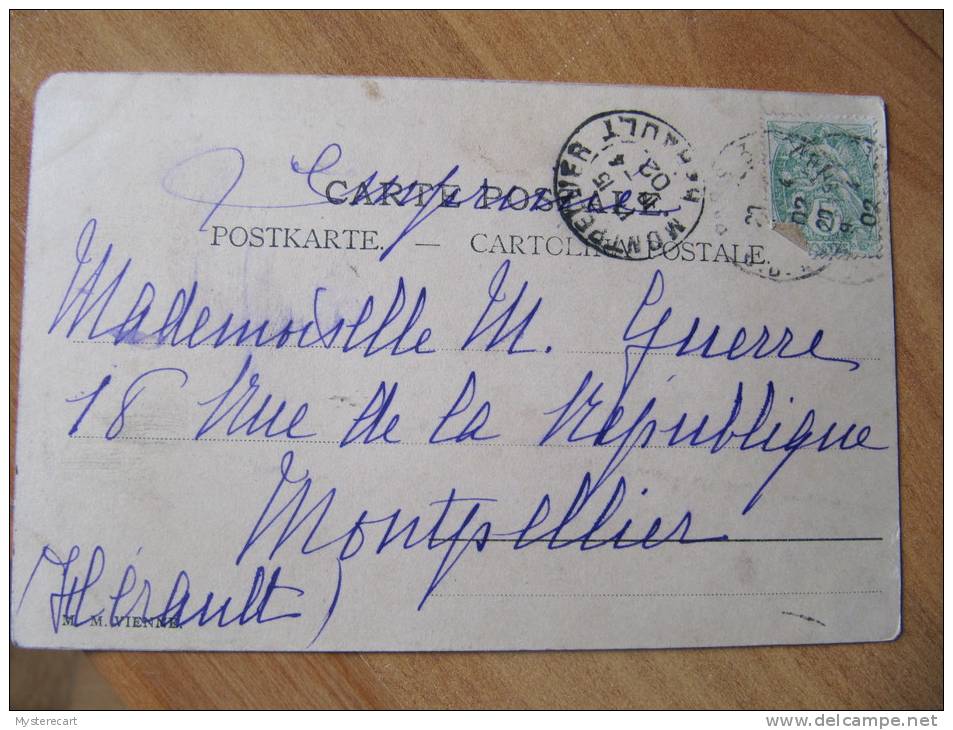 Imprimé
CARTE POSTALE.
POSTKARTE. — CARTOLINA POSTALE.
MONTPELLIER HERAULT
15
4
02
Mademoiselle M. Guerre
18 Rue de la République
Montpellier
(Hérault)
M. M. VIENNE.
Mysterecart
delcampe.net